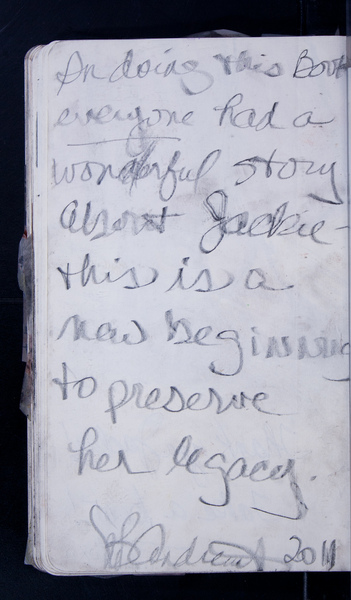 In doing this Book
everyone had a
wonderful story
about Jackie -
this is a
new beginning
to preserve
her legacy.
2011